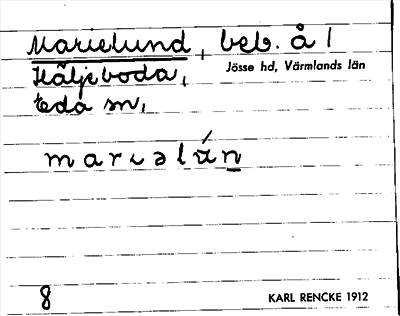 Marielund, beb. å 1
Häljeboda, Jösse hd, Värmlands län
Eda sn,
marıəlún
8 KARL RENCKE 1912